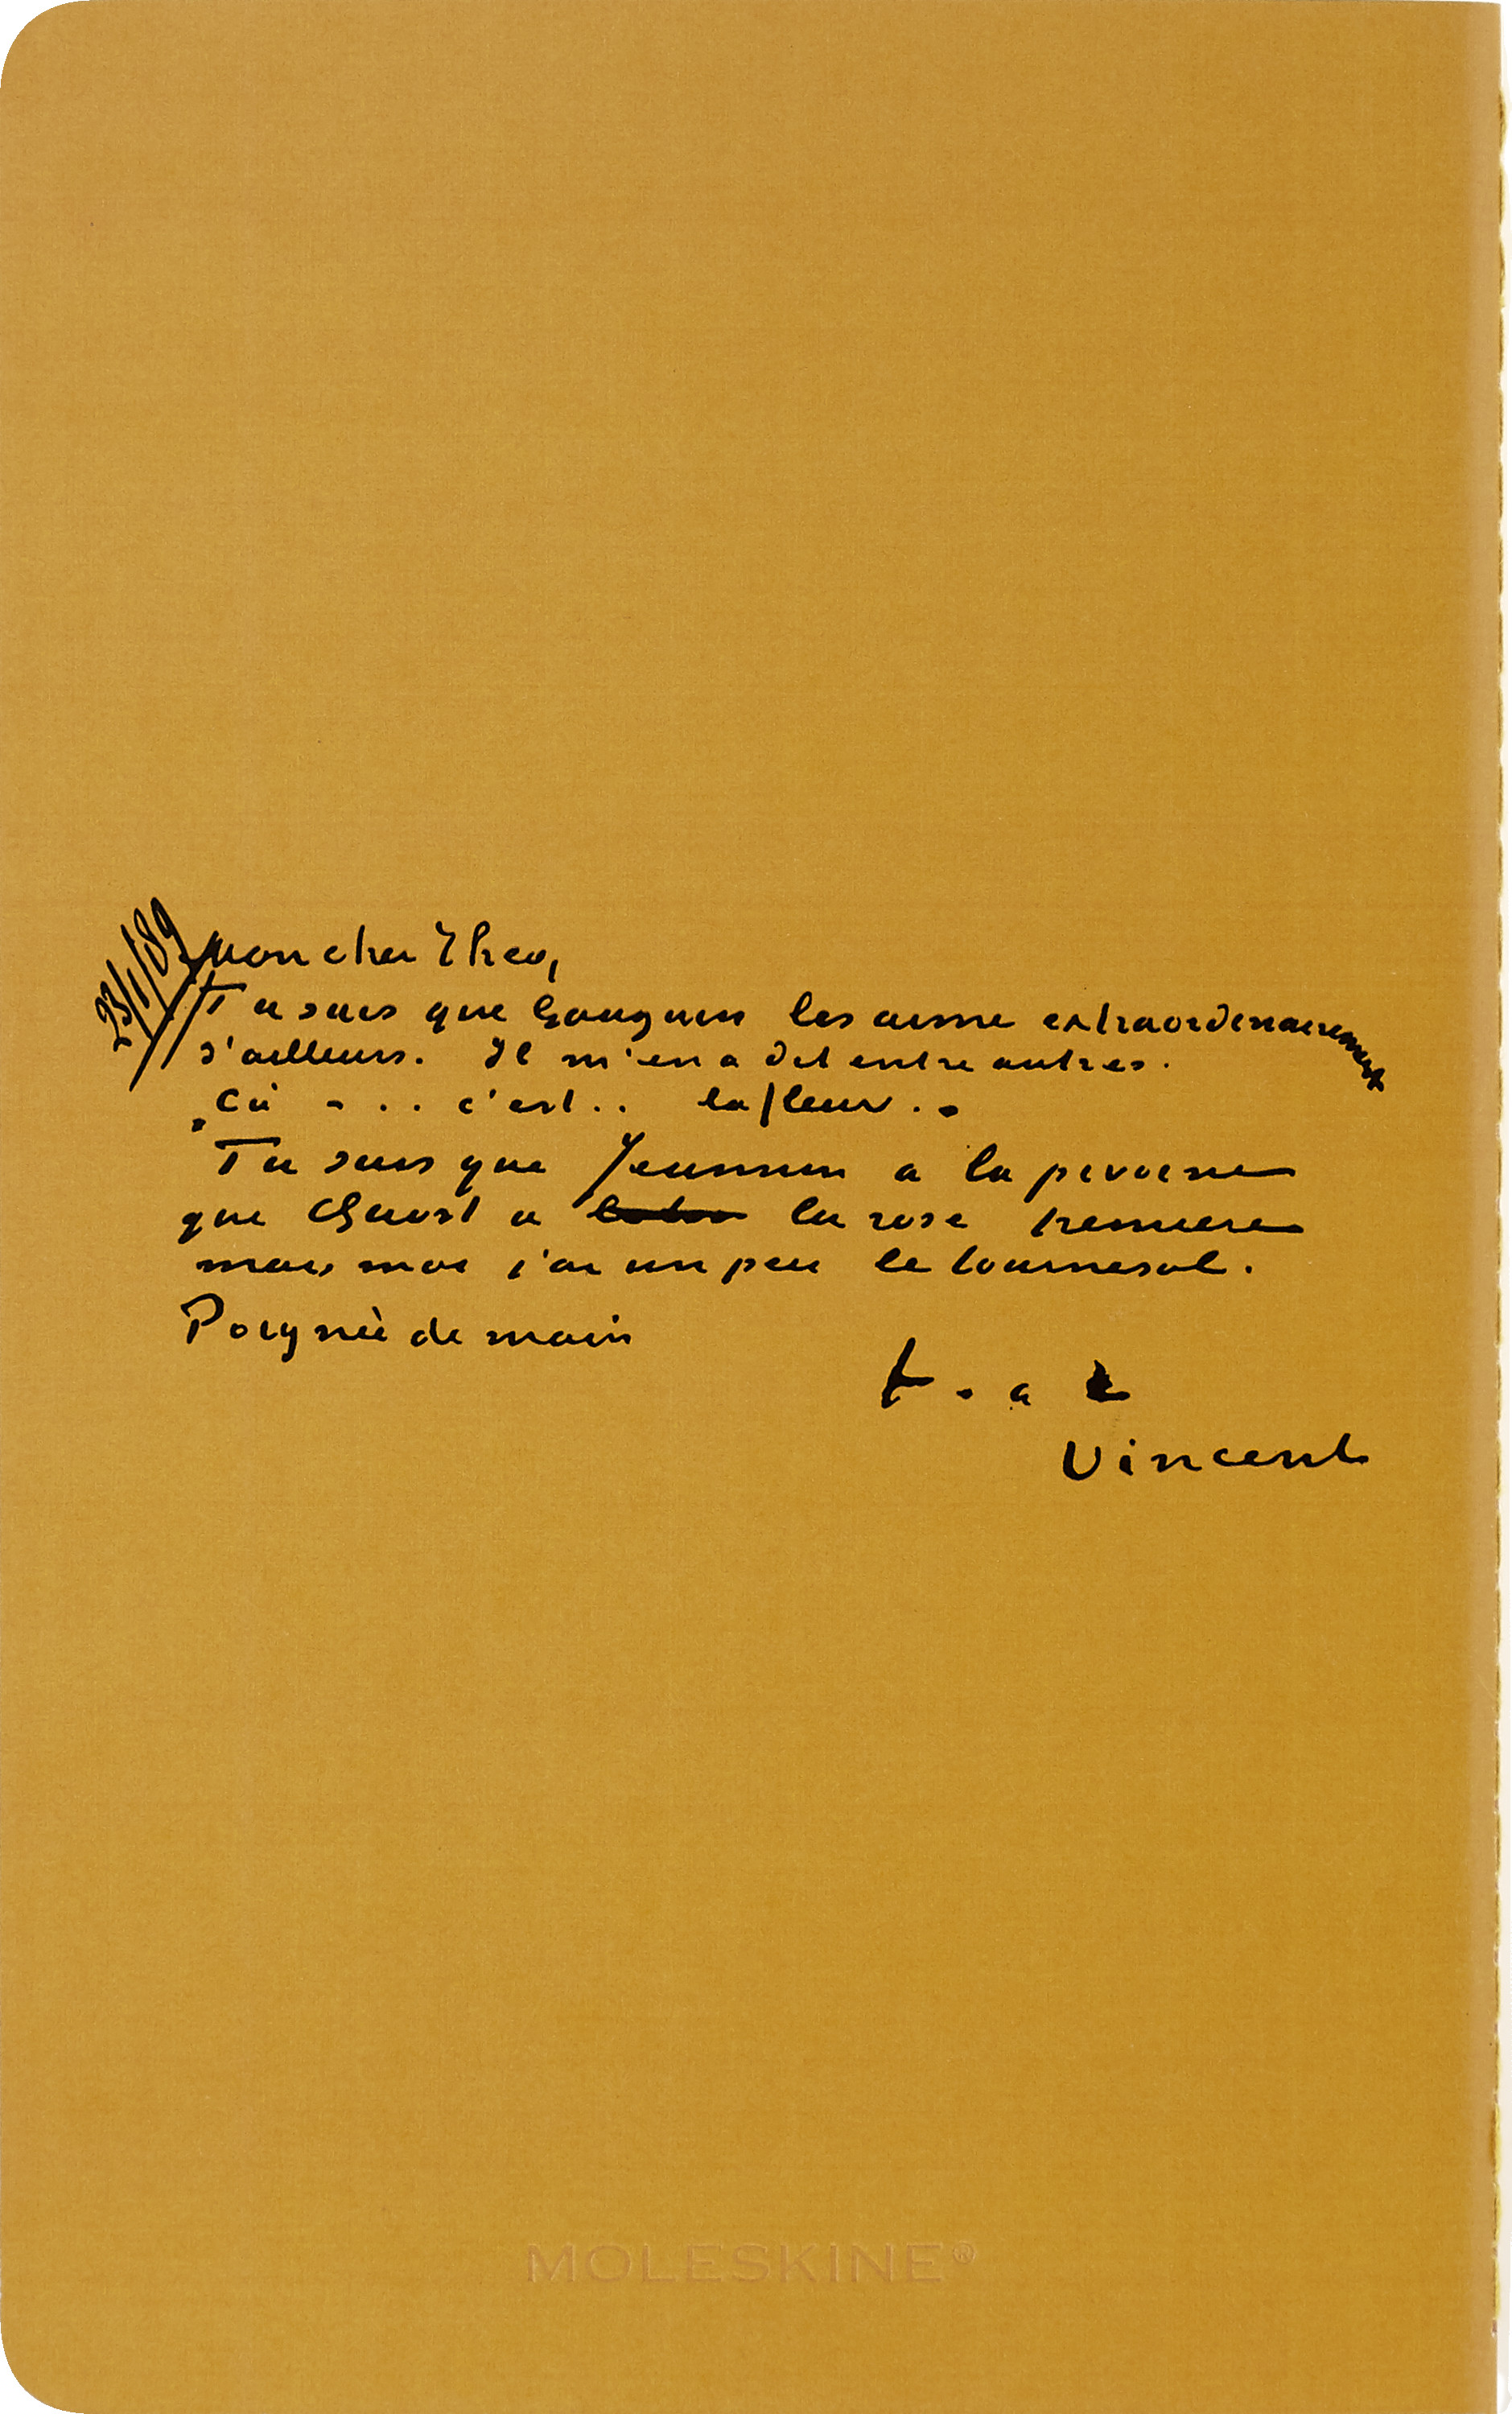 23/1/89
Mon cher Theo,
Tu sais que Gauguin les aime extraordinairement
d'ailleurs. Il m'en a dit entre autres.
„ça - . . c'est . . la fleur . .
Tu sais que Jeannin a la pivoine
que Quost a la rose tremiere
mais moi j'ai un peu le tournesol.
Poignée de main
t. a t
Vincent
MOLESKINE®